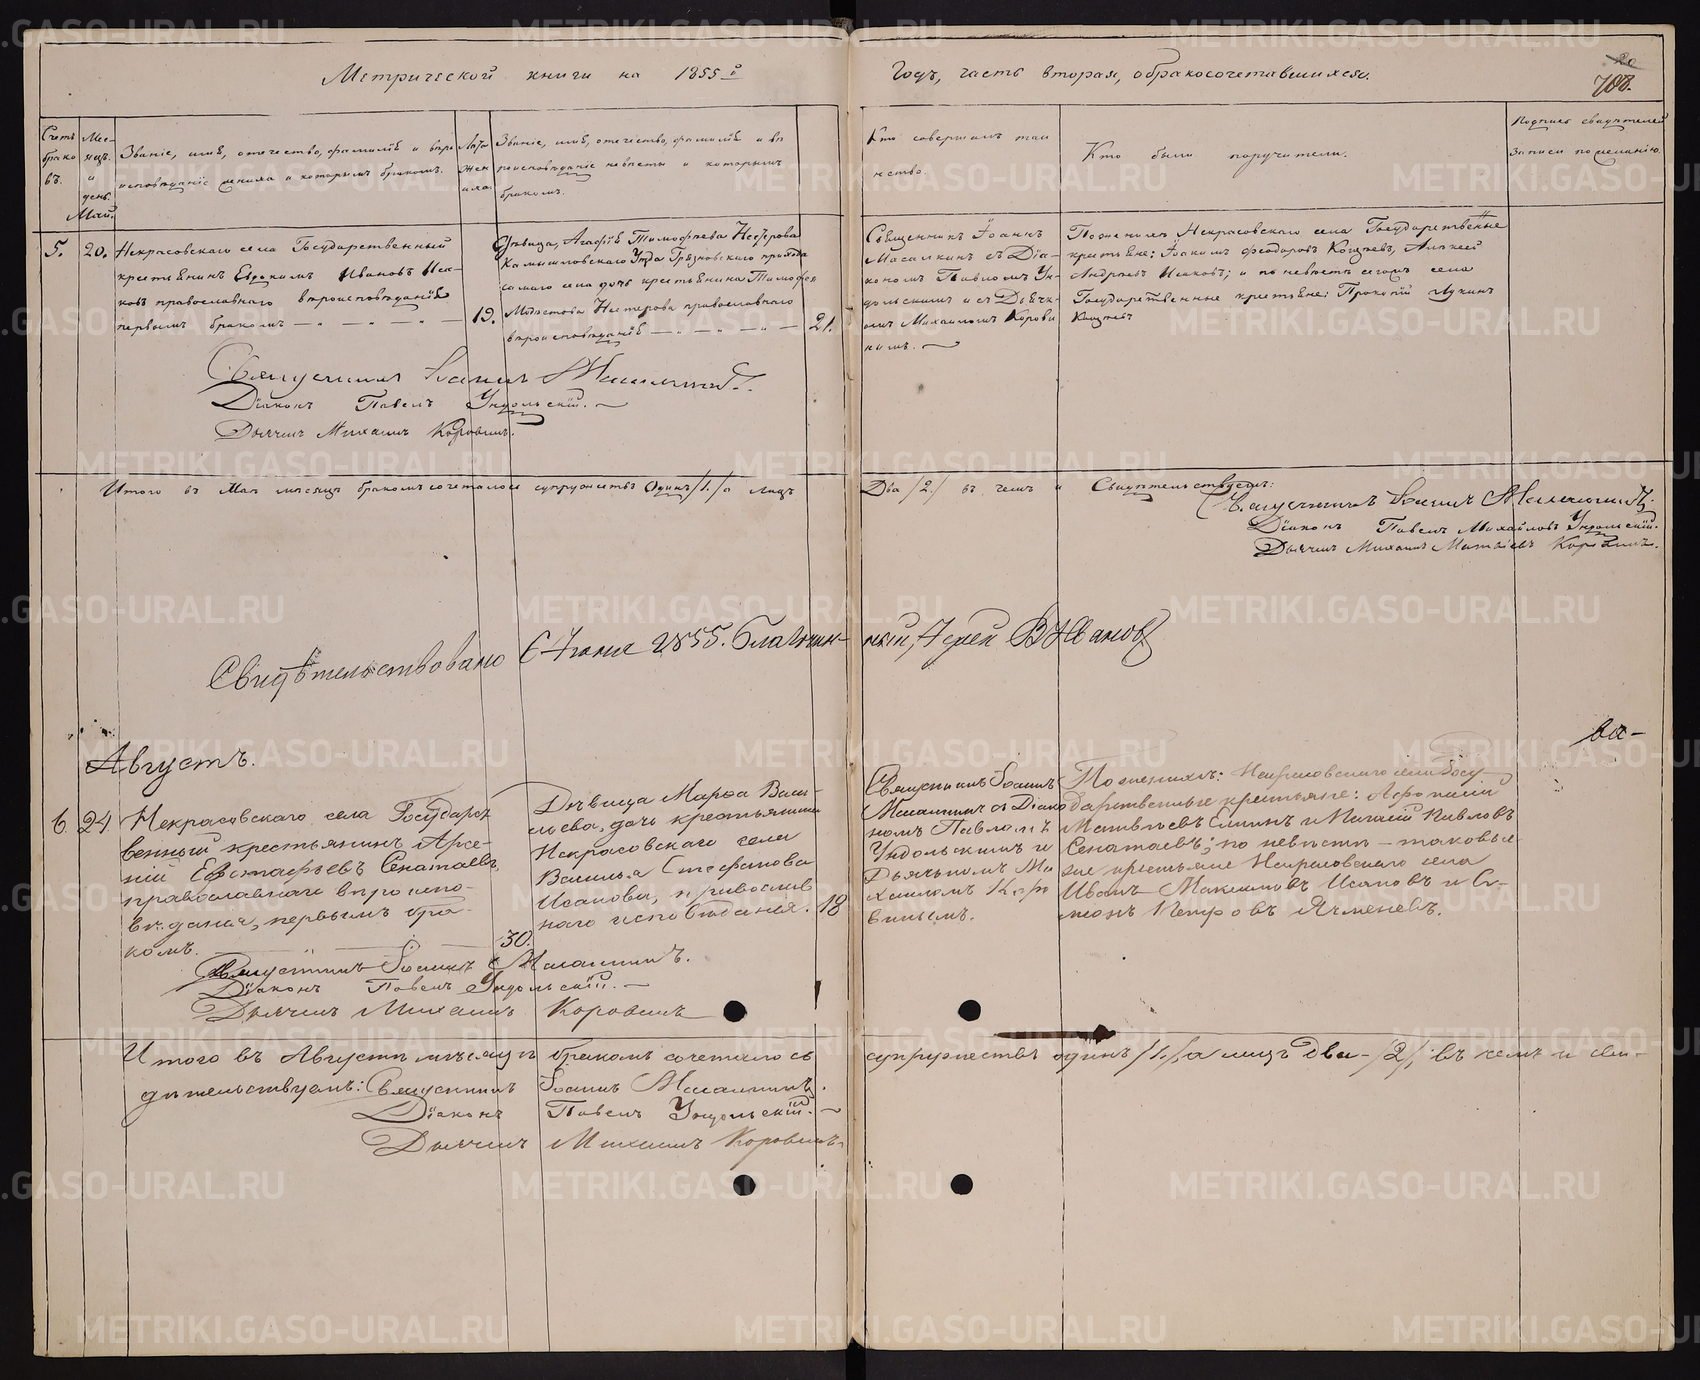 Метрической книги на 1855й
Годъ, часть вторая, о бракосочетавшихся.
708.
Счетъ браковъ.
Месяцъ и день.
Званіе, имя, отечество, фамилія и вѣроисповѣданіе жениха и которымъ бракомъ.
Лѣта жениха.
Званіе, имя, отечество, фамилія и вѣроисповѣданіе невѣсты и которымъ бракомъ.
Кто совершалъ таинство.
Кто были поручители.
Подпись свидѣтелей записи по желанію.
Май.
5.
20.
Некрасовскаго села Государственный
крестьянинъ Евдокимъ Ивановъ Иса-
ковъ православнаго вѣроисповѣданія
первымъ бракомъ
19.
Дѣвица, Агафія Тимофѣева Нестерова
Камышловскаго Уѣзда Грязновскаго прихода
самаго села дочь крестьянина Тимофея
Нестерова православнаго
вѣроисповѣданія
21.
Священникъ Іоаннъ
Масалкинъ съ Діа-
кономъ Павломъ Ун-
дольскимъ и съ Дьячк-
омъ Михаиломъ Корови-
нымъ.
По женихѣ Некрасовскаго села Государственные
крестьяне: Іоакимъ Феодоровъ Алексей
Андреевъ Исаковъ; и по невѣстѣ сегожъ села
Государственные крестьяне: Прокопій Лукинъ
Священникъ Іоаннъ Масалкинъ.
Діаконъ Павелъ Ундольскій.
Дьячекъ Михаилъ Коровинъ.
Итого въ Маѣ месяцѣ бракомъ сочеталось супружествъ Одинъ /1./ а лицъ
Два /2./ въ чемъ и Свидѣтельствуемъ:
Священникъ Іоаннъ Масалкинъ.
Діаконъ Павелъ Михайловъ Ундольскій.
Дьячекъ Михаилъ Матвіевъ Коровинъ.
Свидѣтельствовано 6 Іюня 1855. Благочин-
ный, Іерей
Августъ.
6.
24
Некрасовскаго села Государст
венный крестьянинъ Арсе-
ній Ефстафьевъ Сенатаевъ
православнаго вѣроиспо-
вѣданія, первымъ бра-
комъ.
30.
Дѣвица Марѳа Васи-
льева, дочь крестьянина
Некрасовскаго села
Василья Стефанова
Исакова, православ
наго исповѣданія.
18
Священникъ Іоаннъ
Масалкинъ съ Діако
номъ Павломъ
Ундольскимъ и
Дьячкомъ Ми
хаиломъ Коро
винымъ.
По женихѣ: Некрасовскаго села Госу-
дарственные крестьяне:
Матвѣевъ и Павловъ
Сенатаевъ; по невѣстѣ – таковые
же крестьяне Некрасовскаго села
Иванъ Максимовъ Исаковъ и Си-
монъ Петровъ Ячменевъ.
Священникъ Іоаннъ Масалкинъ.
Діаконъ Павелъ Ундольскій.
Дьячекъ Михаилъ Коровинъ
Итого въ Августѣ мѣсяцѣ бракомъ сочеталось
супружествъ одинъ /1,/ а лицъ два – /2/, въ чемъ и сви-
дѣтельствуемъ: Священникъ Іоаннъ Масалкинъ.
Діаконъ Павелъ Ундольскій.
Дьячекъ Михаилъ Коровинъ
METRIKI.GASO-URAL.RU